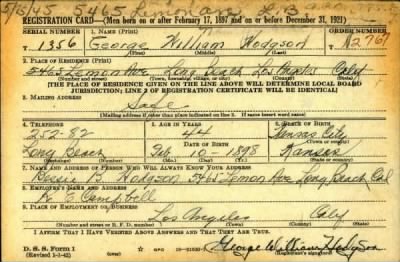 5/15/45 5465
REGISTRATION CARD—(Men born on or after February 17, 1897 and on or before December 31, 1921)
SERIAL NUMBER 1. NAME (Print) ORDER NUMBER
1356 George William Hodgson 12767
(First) (Middle) (Last)
2. PLACE OF RESIDENCE (Print)
5465 Lemon Ave Long Beach Los Angeles Calif
(Number and street) (Town, township, village, or city) (County) (State)
[THE PLACE OF RESIDENCE GIVEN ON THE LINE ABOVE WILL DETERMINE LOCAL BOARD
JURISDICTION; LINE 2 OF REGISTRATION CERTIFICATE WILL BE IDENTICAL]
3. MAILING ADDRESS
Same
[Mailing address if other than place indicated on line 2. If same insert word same]
4. TELEPHONE 5. AGE IN YEARS 6. PLACE OF BIRTH
252-82 44 Kansas City
DATE OF BIRTH (Town or county)
Long Beach Feb 10 1898 Kansas
(Exchange) (Number) (Mo.) (Day) (Yr.) (State or country)
7. NAME AND ADDRESS OF PERSON WHO WILL ALWAYS KNOW YOUR ADDRESS
Bessie Hodgson 5465 Lemon Ave Long Beach Cal
8. EMPLOYER'S NAME AND ADDRESS
Campbell
9. PLACE OF EMPLOYMENT OR BUSINESS
Los Angeles Calif
(Number and street or R. F. D. number) (Town) (County) (State)
I AFFIRM THAT I HAVE VERIFIED ABOVE ANSWERS AND THAT THEY ARE TRUE.
D. S. S. Form 1 GPO George William Hodgson
(Revised 1-1-42) (Registrant's signature)